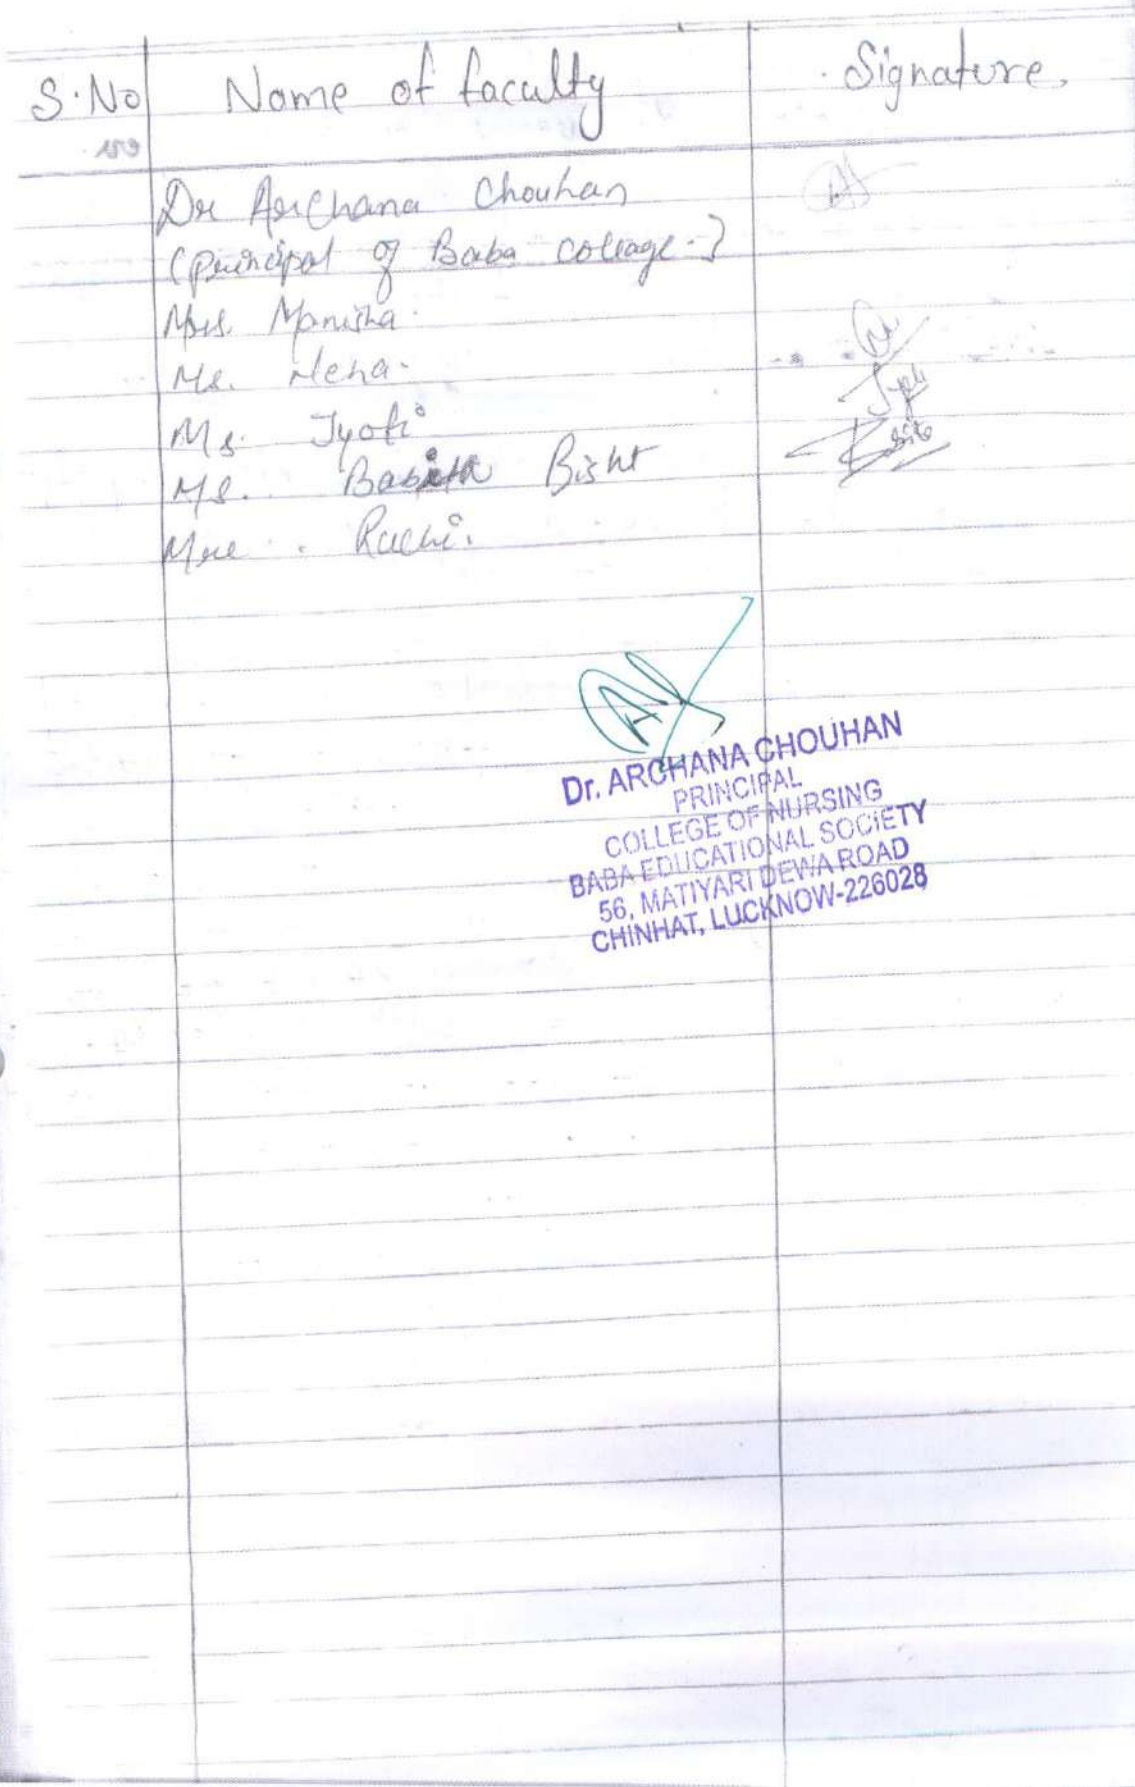 S.No Name of faculty Signature.
Dr Archana Chouhan
(principal of Baba collage.)
Mrs. Manisha.
Ms. Neha.
Ms. Jyoti
Ms. Babita Bisht
Mrs. Ruchi.
Dr. ARCHANA CHOUHAN
PRINCIPAL
COLLEGE OF NURSING
BABA EDUCATIONAL SOCIETY
56, MATIYARI DEWA ROAD
CHINHAT, LUCKNOW-226028